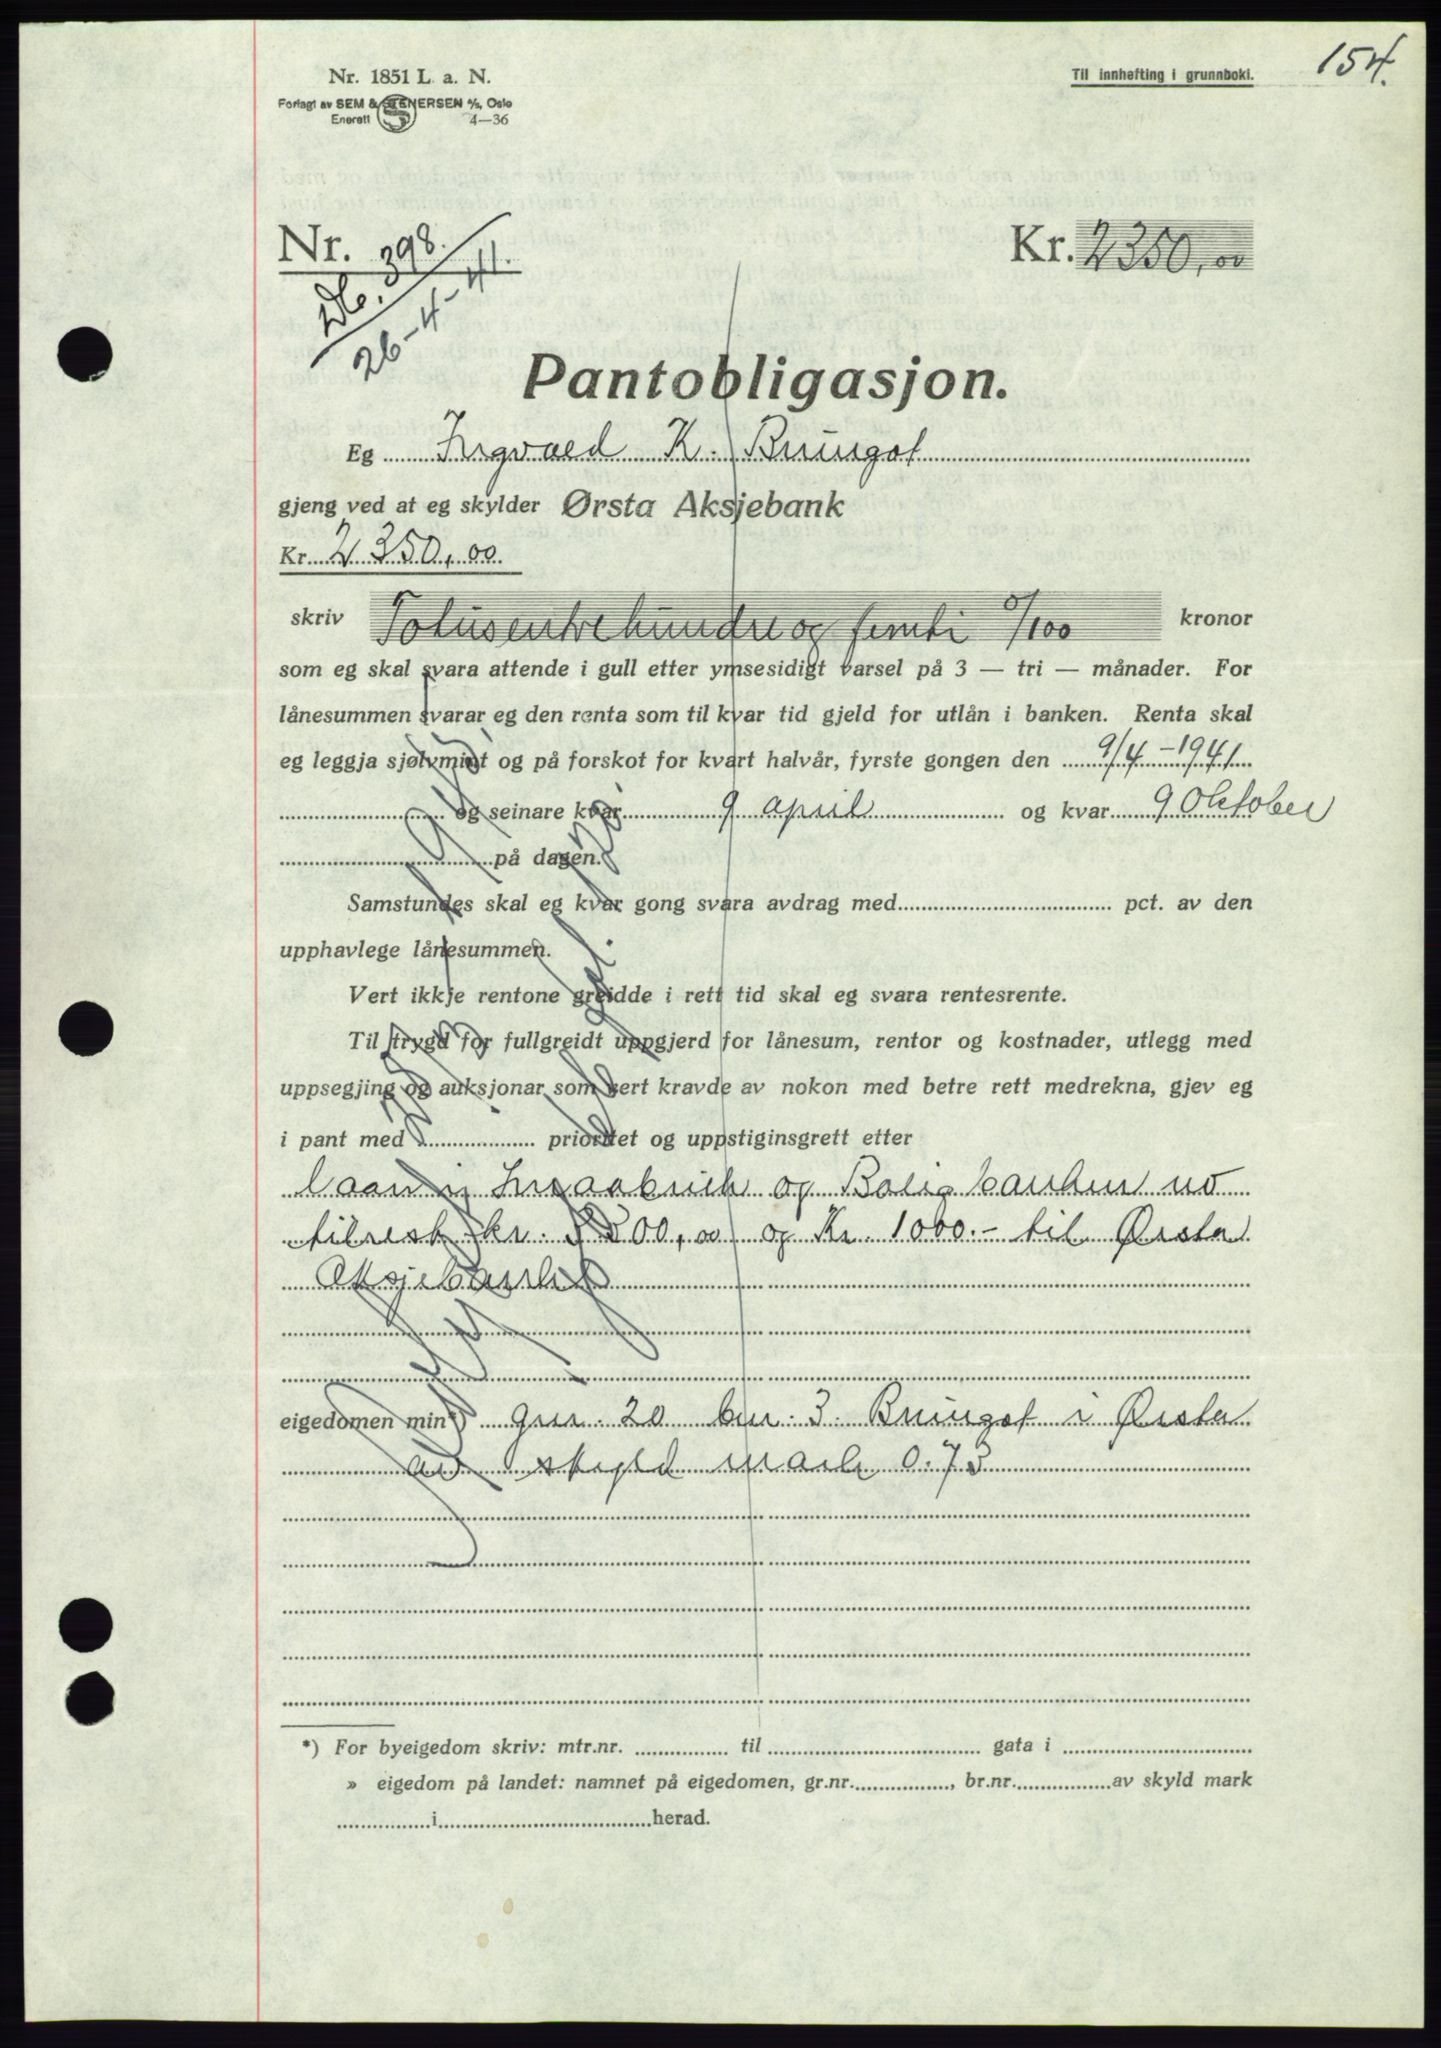 154.
Nr. 1851 L. a. N.
Til innhefting i grunnboki.
Forlagt av SEM & STENERSEN A/S, Oslo
Enerett 4—36
Nr. Kr. 2350,00
Db. 398.
26-4-41.
Pantobligasjon.
Eg Ingvald K. Brungot
gjeng ved at eg skylder Ørsta Aksjebank
Kr. 2350,00
skriv Totusentrehundre og femti 0/100 kronor
som eg skal svara attende i gull etter ymsesidigt varsel på 3 — tri — månader. For
lånesummen svarar eg den renta som til kvar tid gjeld for utlån i banken. Renta skal
eg leggja sjølvmint og på forskot for kvart halvår, fyrste gongen den 9/4 - 1941
og seinare kvar 9 april og kvar 9 Oktober
på dagen.
Samstundes skal eg kvar gong svara avdrag med pct. av den
upphavlege lånesummen.
Vert ikkje rentone greidde i rett tid skal eg svara rentesrente.
Til trygd for fullgreidt uppgjerd for lånesum, rentor og kostnader, utlegg med
uppsegjing og auksjonar som vert kravde av nokon med betre rett medrekna, gjev eg
i pant med prioritet og uppstiginsgrett etter
Laan i Småbruk og Bolig banken no
tilrest kr. 5500,00 og Kr. 1000.- til Ørsta
Aksjebank
eigedomen min*) gnr. 20 bnr. 3. Brungot i Ørsta
av skyld mark 0.75
*) For byeigedom skriv: mtr.nr. til gata i
» eigedom på landet: namnet på eigedomen, gr.nr. , br.nr. av skyld mark
i herad.